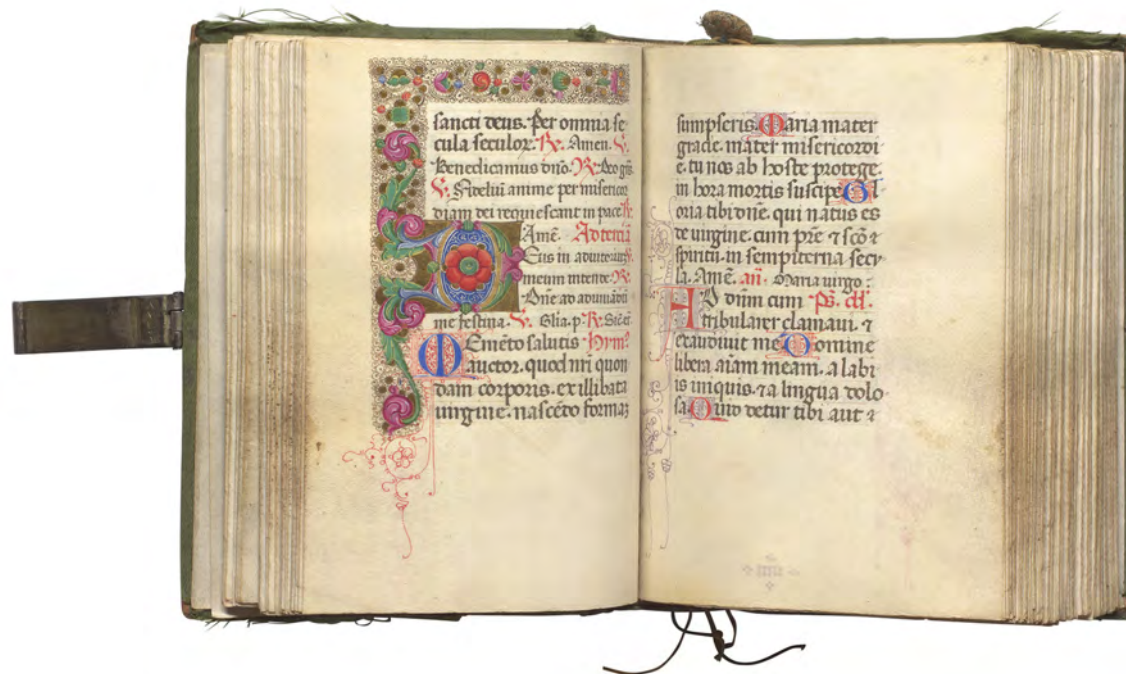 sancti deus. Per omnia se
cula seculoꝝ. ℟. Amen. ℣.
Benedicamus dn̄o. ℟. Deo gr̄s.
℣. Fideliū anime per misericor
diam dei requiescant in pace ℟.
Amē. Ad terciā
Deus in adiutoriuꝫ
meum intende. ℟.
Dn̄e ad adiuuādū
me festina. ℣. Glia. p. ℟. Sic̄
Memēto salutis Hym?
auctor. quod nr̄i quon
dam corporis. ex illibata
uirgine. nascēdo formaꝫ
sumpseris. Maria mater
gracie. mater misericordi
e. tu nos ab hoste protege.
in hora mortis suscipe. Gl
oria tibi dn̄e. qui natus es
de uirgine. cum pr̄e ⁊ sc̄o ⁊
spiritu. in sempiterna secu
la. Amē. an̄. Maria uirgo:
AD dn̄m cum ps. dd.
tribularer clamaui. ⁊
exaudiuit me Domine
libera aīam meam. a labi
is iniquis. ⁊ a lingua dolo
sa. Quid detur tibi aut ⁊